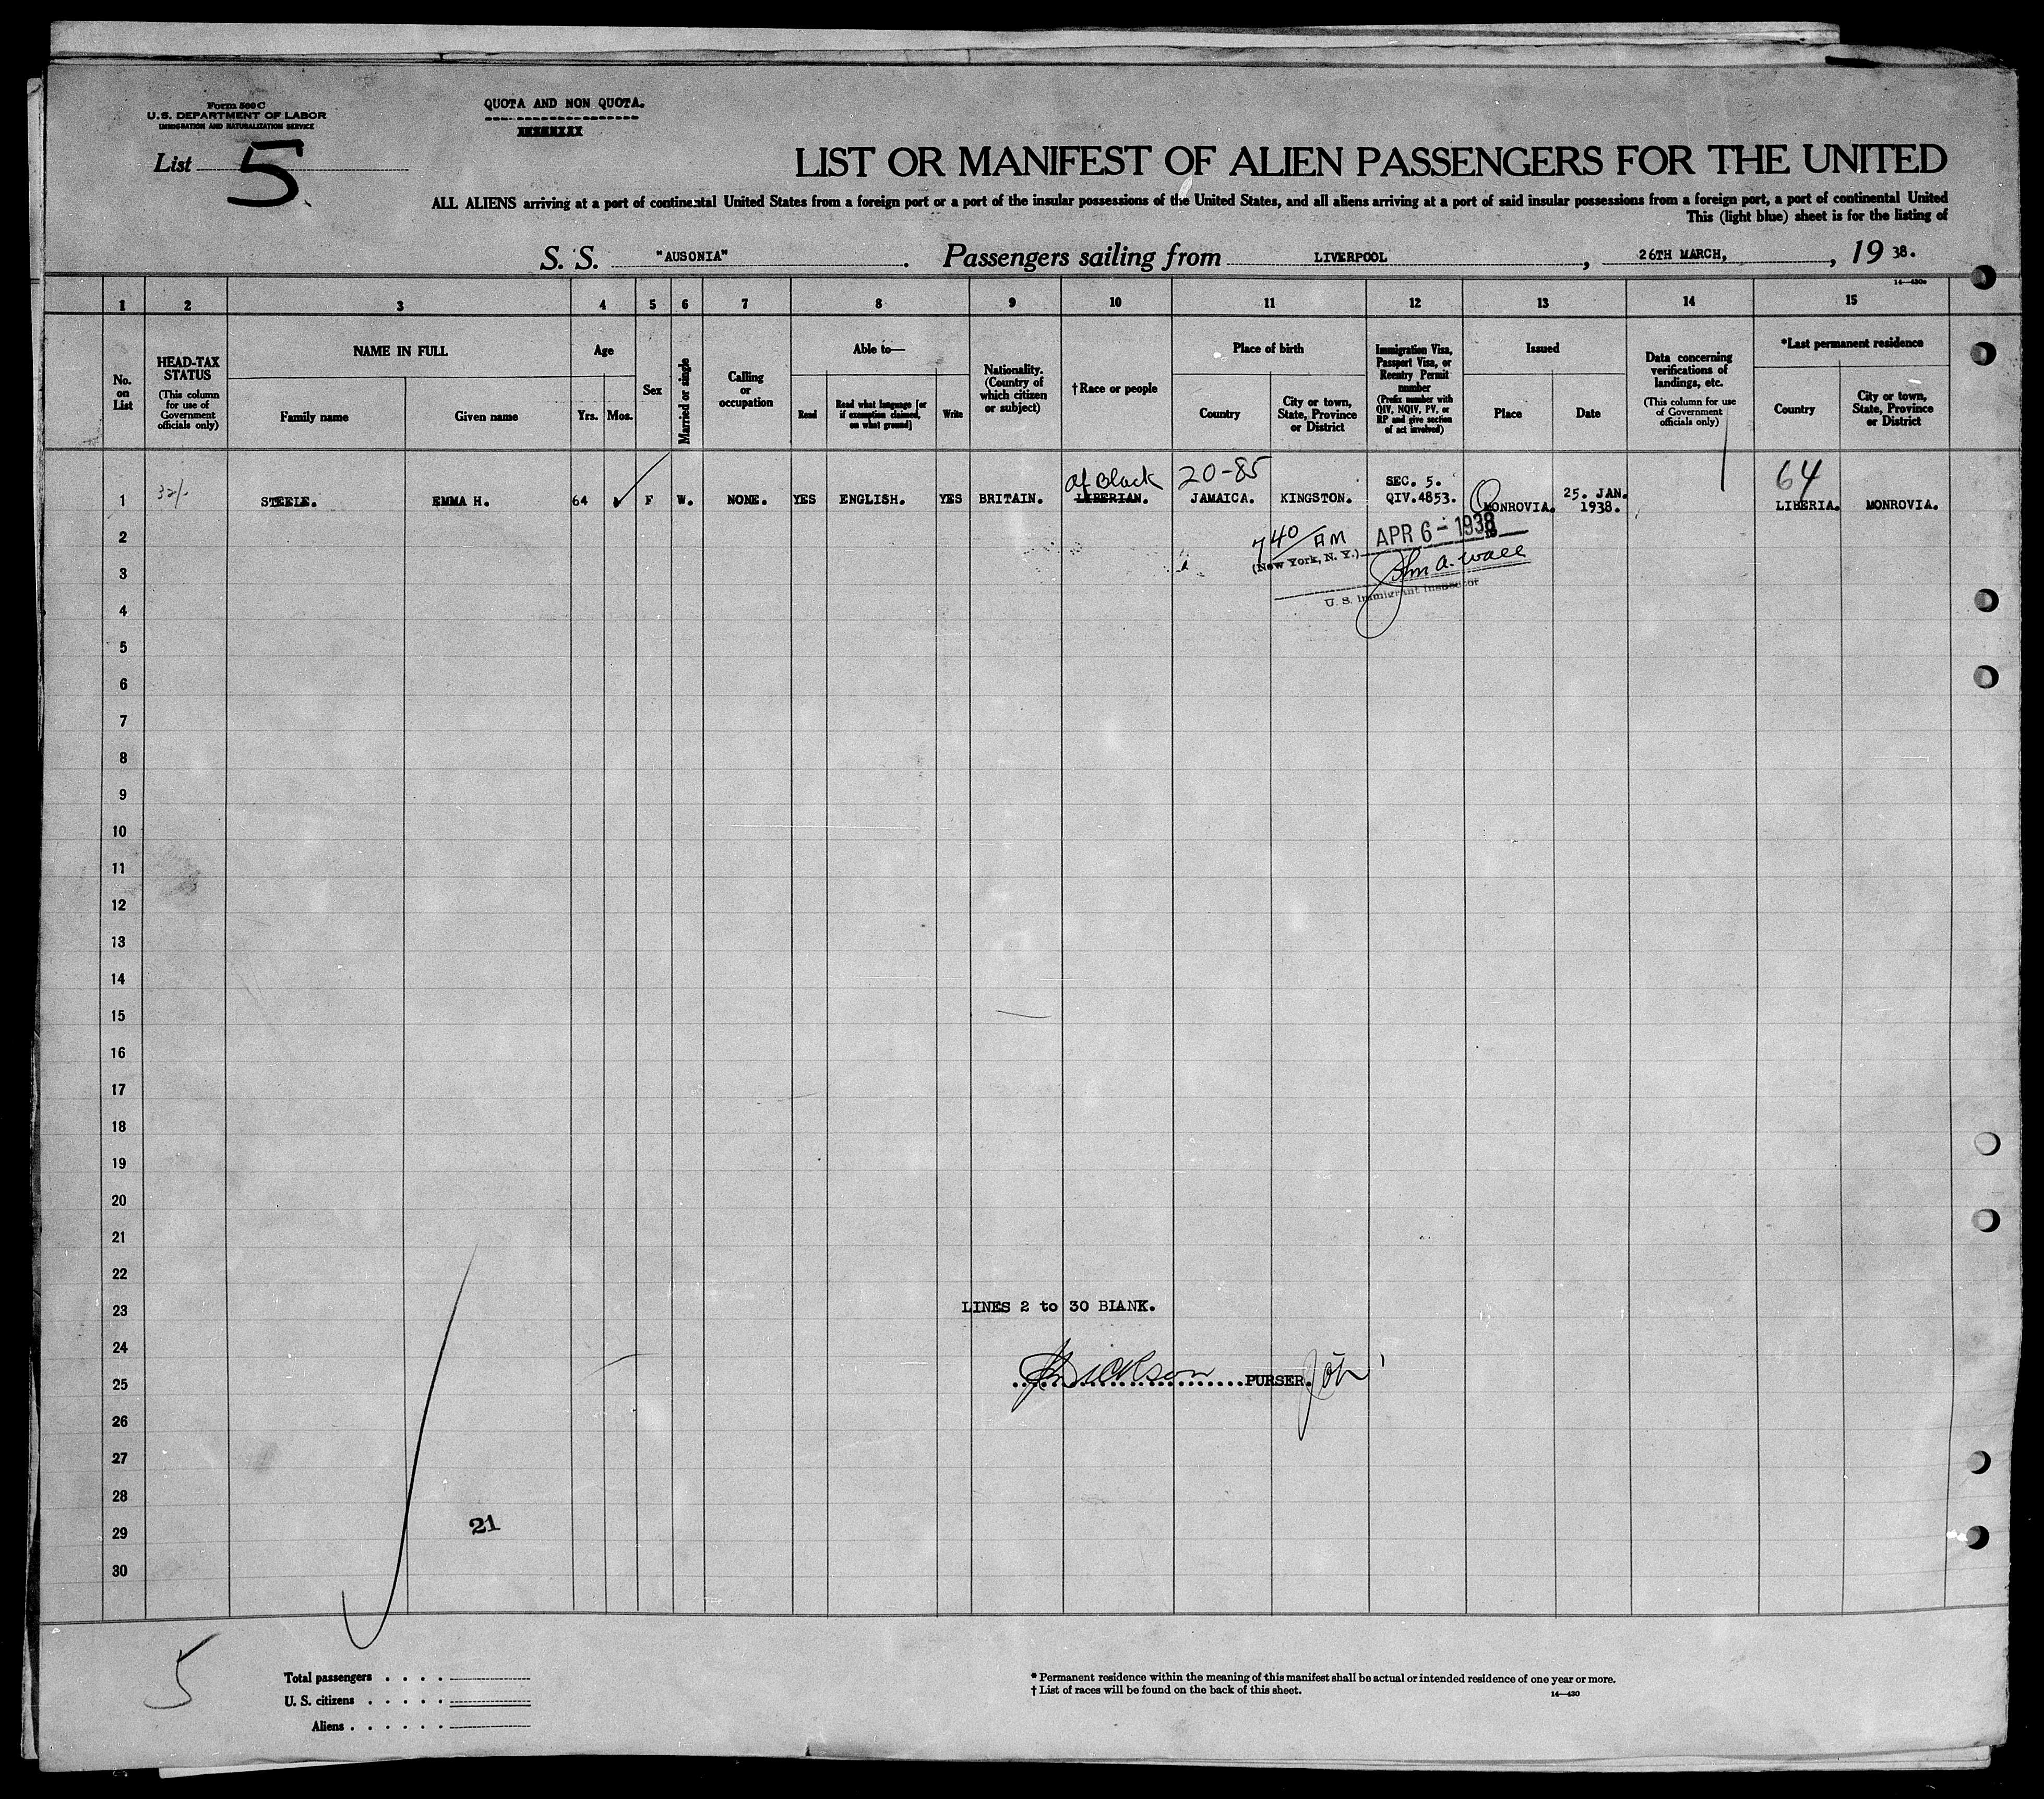 Form 500 C
U.S. DEPARTMENT OF LABOR
IMMIGRATION AND NATURALIZATION SERVICE
QUOTA AND NON QUOTA.
List 5
LIST OR MANIFEST OF ALIEN PASSENGERS FOR THE UNITED
ALL ALIENS arriving at a port of continental United States from a foreign port or a port of the insular possessions of the United States, and all aliens arriving at a port of said insular possessions from a foreign port, a port of continental United
This (light blue) sheet is for the listing of
S. S. "AUSONIA". Passengers sailing from LIVERPOOL, 26TH MARCH, , 19 38.
1 2 3 4 5 6 7 8 9 10 11 12 13 14 15
No. on List
HEAD-TAX STATUS
(This column for use of Government officials only)
NAME IN FULL
Family name
Given name
Age
Yrs. Mos.
Sex
Married or single
Calling or occupation
Able to—
Read
Read what language [or if exemption claimed, on what ground]
Write
Nationality. (Country of which citizen or subject)
†Race or people
Place of birth
Country
City or town, State, Province or District
Immigration Visa, Passport Visa, or Reentry Permit number
(Prefix number with QIV, NQIV, PV, or RP and give section of act involved)
Issued
Place
Date
Data concerning verifications of landings, etc.
(This column for use of Government officials only)
*Last permanent residence
Country
City or town, State, Province or District
Af Black 20-85 SEC. 5. 25. JAN. 64
1 STEELE. EMMA H. 64 F W. NONE. YES ENGLISH. YES BRITAIN. LIBERIAN. JAMAICA. KINGSTON. QIV.4853. MONROVIA. 1938. LIBERIA. MONROVIA.
7 40 AM APR 6 - 1938
(New York, N. Y.) John A. Wall
U. S. Immigrant Inspector
2
3
4
5
6
7
8
9
10
11
12
13
14
15
16
17
18
19
20
21
22
23
LINES 2 to 30 BLANK.
24
25
Dickson PURSER.
26
27
28
29
21
30
5
Total passengers . . . .
U. S. citizens . . . . .
Aliens . . . . . .
* Permanent residence within the meaning of this manifest shall be actual or intended residence of one year or more.
† List of races will be found on the back of this sheet.
14—430